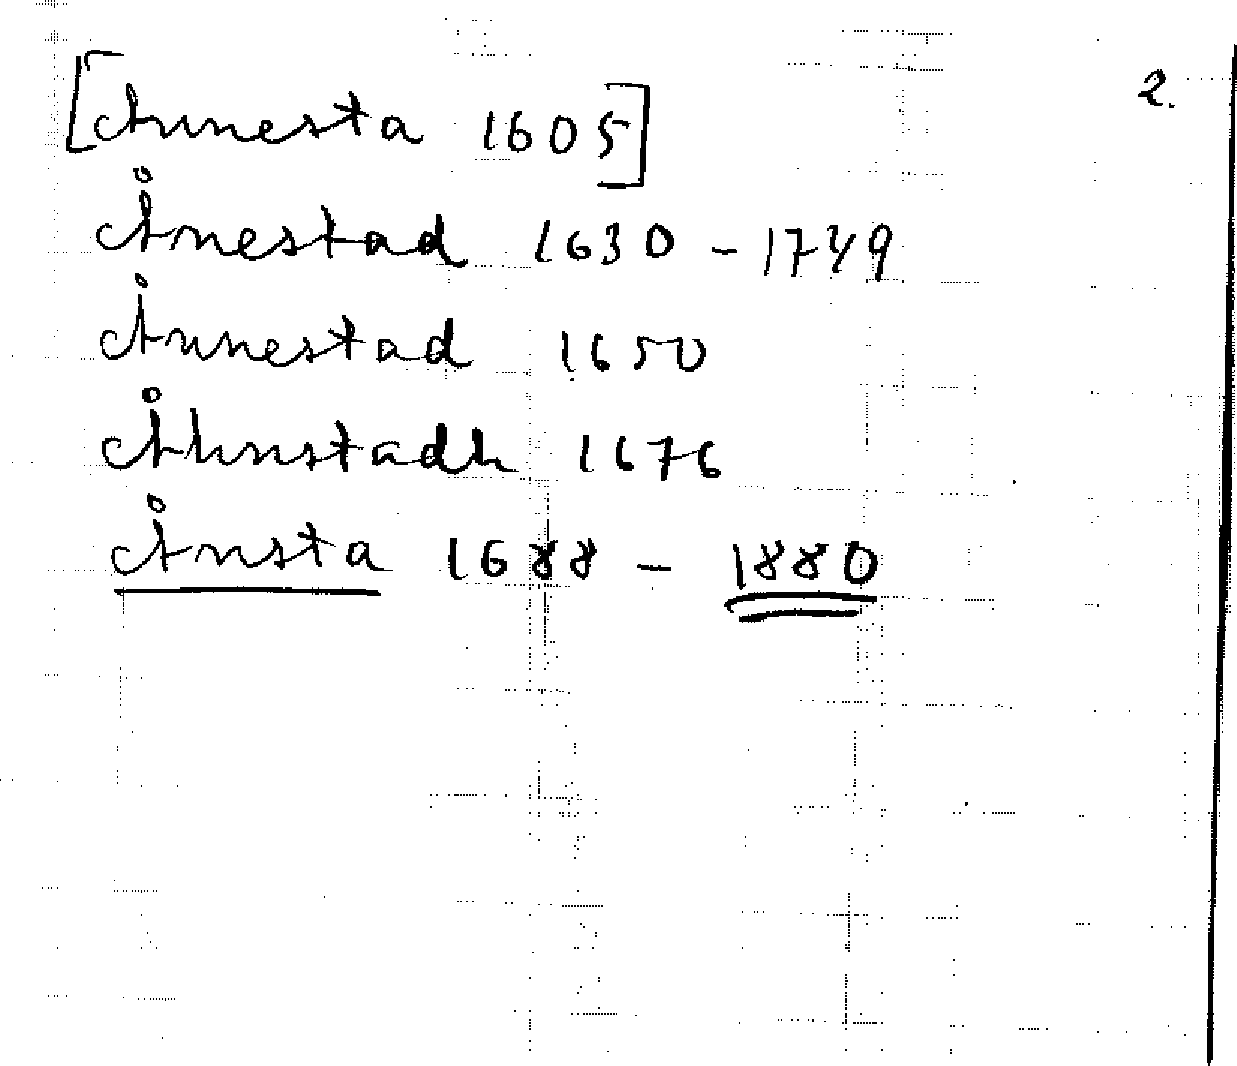 2.
[Annesta 1605]
Ånestad 1630 - 1749
Ånnestad 1650
Åhnstadh 1676
Ånsta 1688 - 1880